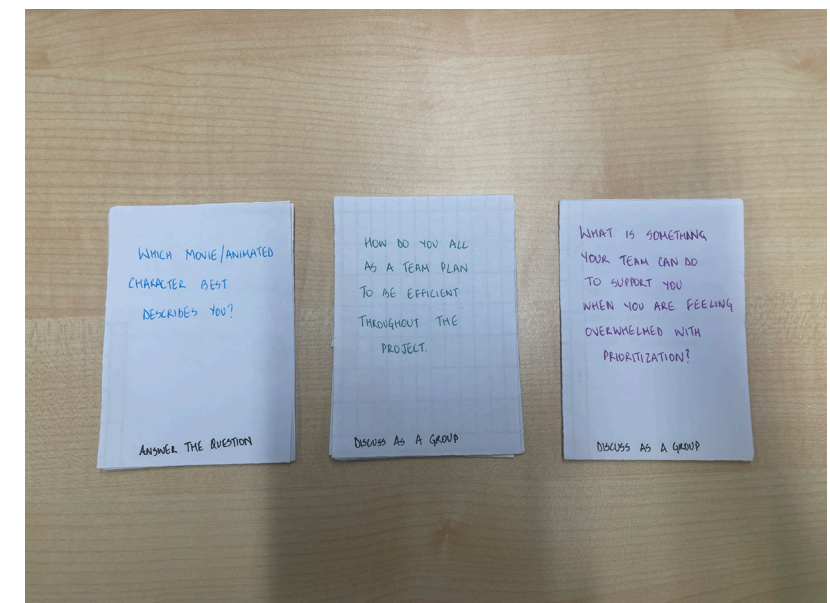 WHICH MOVIE/ANIMATED
CHARACTER BEST
DESCRIBES YOU?
ANSWER THE QUESTION
HOW DO YOU ALL
AS A TEAM PLAN
TO BE EFFICIENT
THROUGHOUT THE
PROJECT.
DISCUSS AS A GROUP
WHAT IS SOMETHING
YOUR TEAM CAN DO
TO SUPPORT YOU
WHEN YOU ARE FEELING
OVERWHELMED WITH
PRIORITIZATION?
DISCUSS AS A GROUP